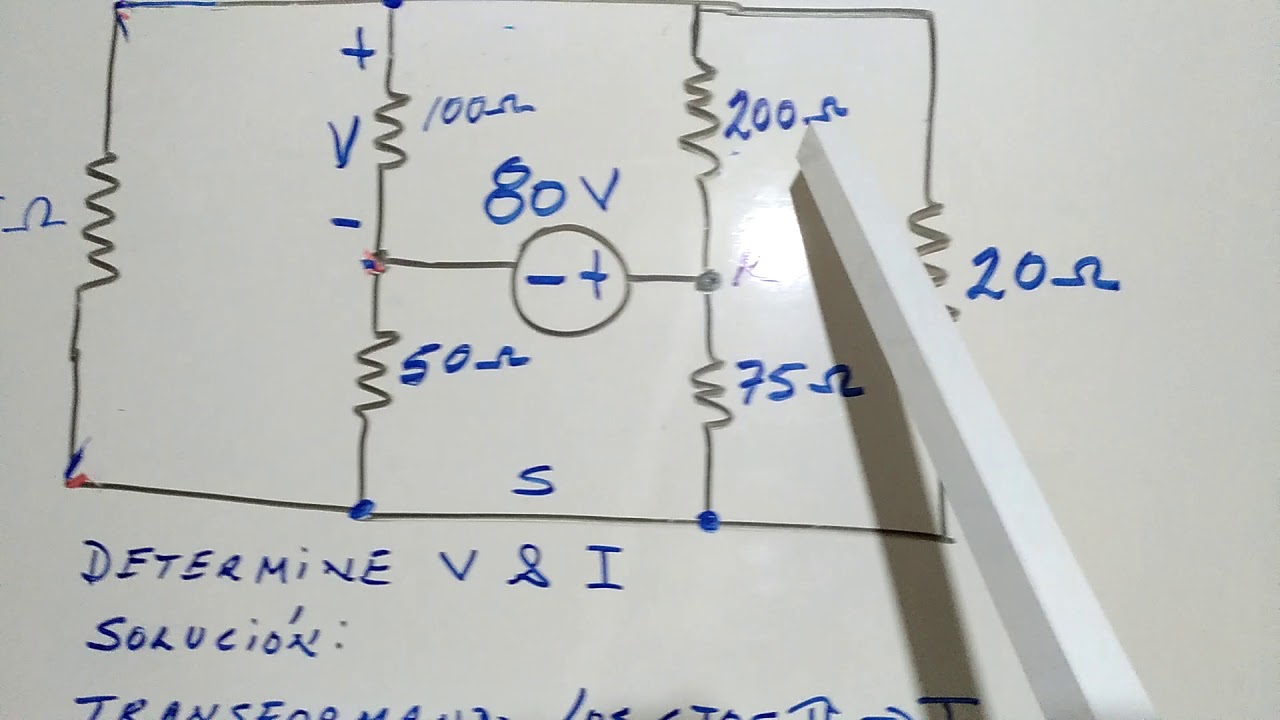 +
100Ω
200Ω
V
80 V
-
Ω
- +
K
20Ω
50Ω
75Ω
S
DETERMINE V & I
SOLUCIÓN: